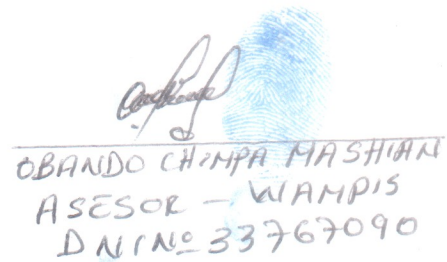 OBANDO CHIMPA MASHIAN
ASESOR – WAMPIS
DNI Nº 33767090